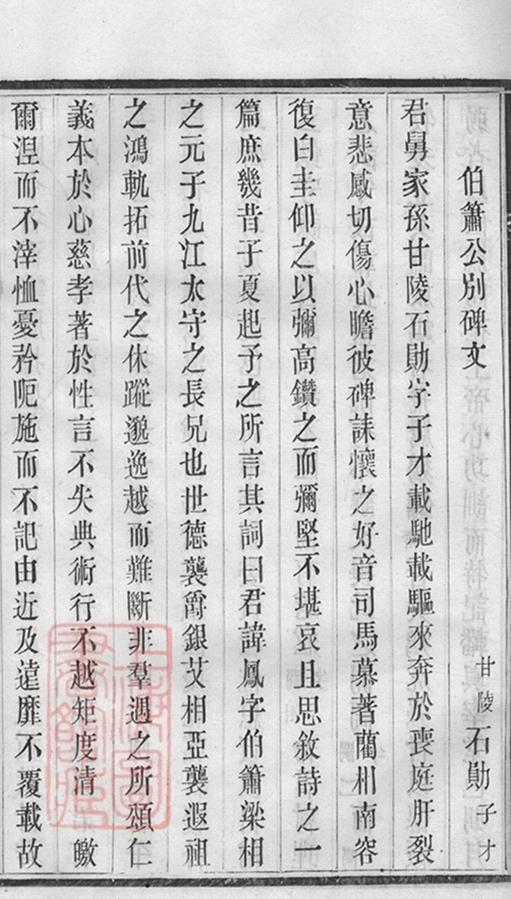 伯簫公別碑文
甘陵石勛子才
君舅家孫甘陵石勛字子才載馳載驅來奔於喪庭肝裂
意悲感切傷心瞻彼碑誄懷之好音司馬慕著藺相南容
復白圭仰之以彌高鑽之而彌堅不堪哀且思敘詩之一
篇庶幾昔子夏起予之所言其詞曰君諱鳳字伯簫梁相
之元子九江太守之長兄也世德襲爵銀艾相亞襲遐祖
之鴻軌拓前代之休蹤邈逸越而難斷非羣遇之所頌仁
義本於心慈孝著於性言不失典術行不越矩度清 皦
爾涅而不滓恤憂矜戹施而不記由近及遠靡不覆載故